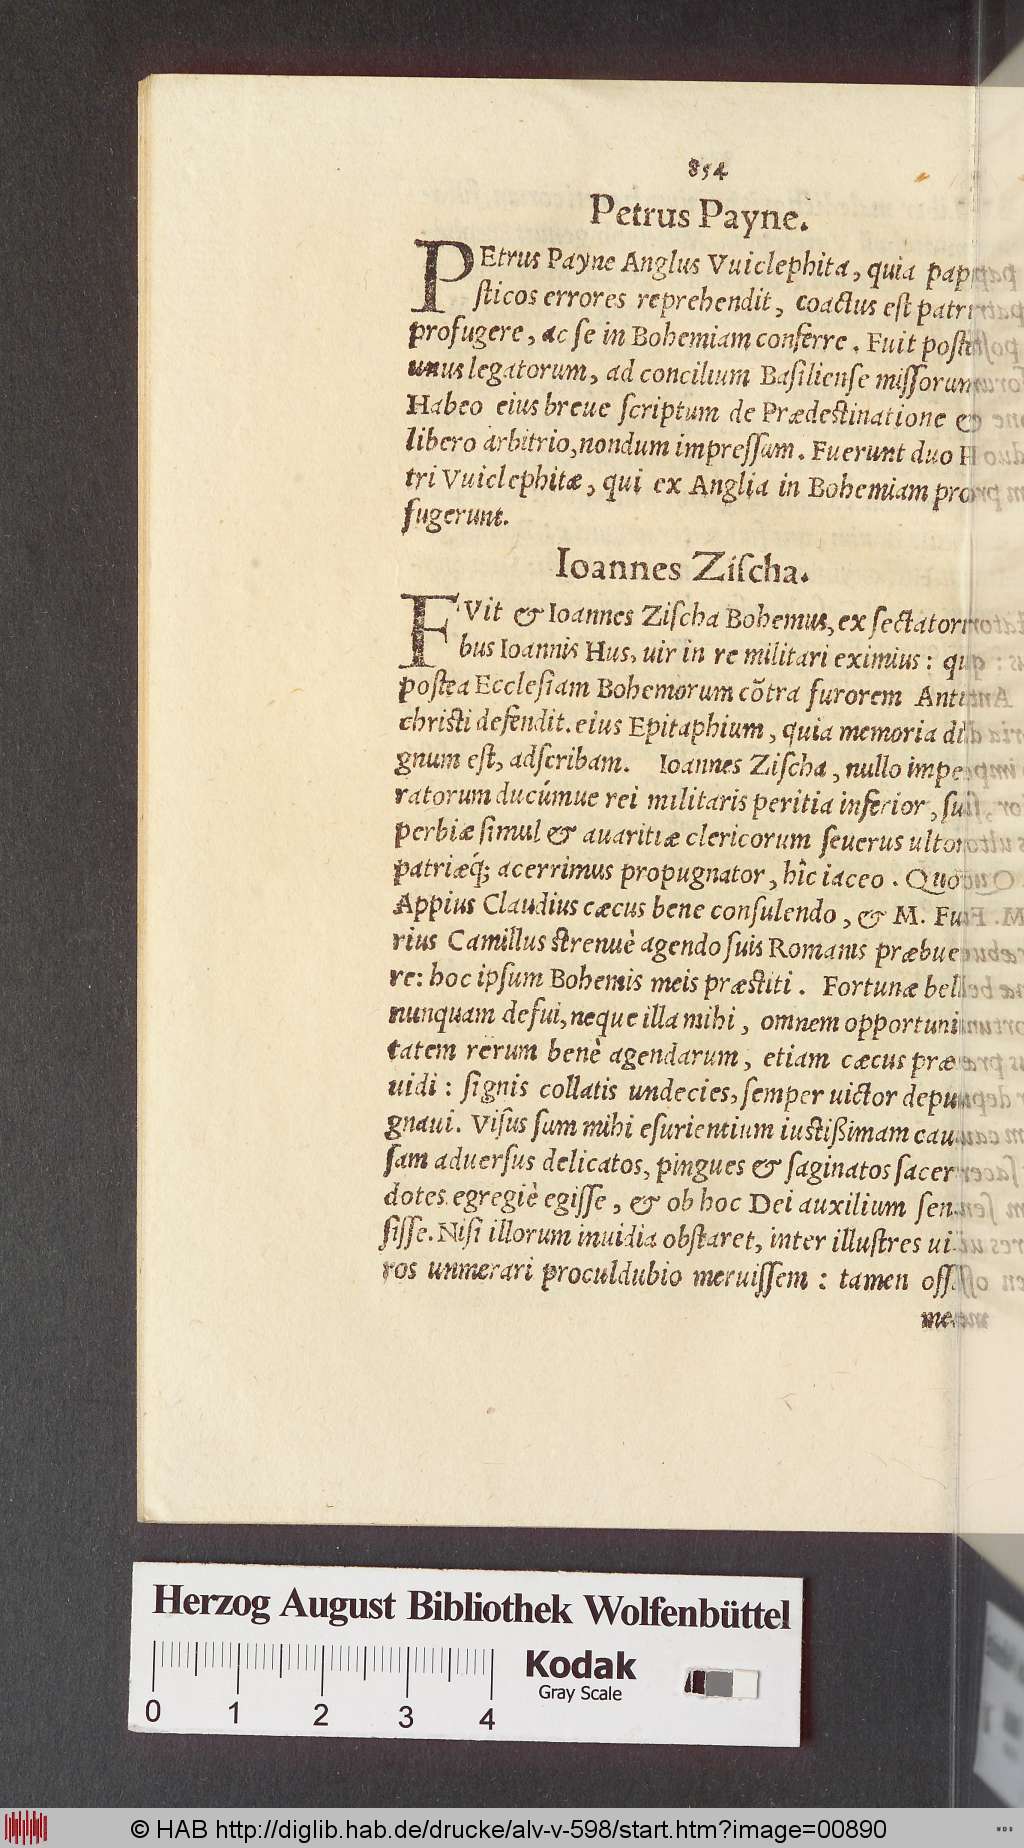 854
Petrus Payne.
PEtrus Payne Anglus Vuiclephita, quia papi
ſticos errores reprehendit, coactus eſt patri
profugere, ac ſe in Bohemiam conferre. Fuit poſtea
unus legatorum, ad concilium Baſilienſe miſſorum
Habeo eius breue ſcriptum de Prædeſtinatione &
libero arbitrio, nondum impreſſam. Fuerunt duo
tri Vuiclephitæ, qui ex Anglia in Bohemiam pro
fugerunt.
Ioannes Ziſcha.
FVit & Ioannes Ziſcha Bohemus, ex ſectatori
bus Ioannis Hus, uir in re militari eximius: qui
poſtea Eccleſiam Bohemorum cõtra furorem Anti
chriſti defendit. eius Epitaphium, quia memoria di
gnum eſt, adſcribam. Ioannes Ziſcha, nullo impe
ratorum ducúmue rei militaris peritia inferior, ſu
perbiæ ſimul & auaritiæ clericorum ſeuerus ultor
patriæq́; acerrimus propugnator, hîc iaceo. Quod
Appius Claudius cæcus bene conſulendo, & M. Fu
rius Camillus ſtrenuè agendo ſuis Romanis præbue
re: hoc ipſum Bohemis meis præſtiti. Fortunæ belli
nunquam defui, neque illa mihi, omnem opportuni
tatem rerum benè agendarum, etiam cæcus præ
uidi: ſignis collatis undecies, ſemper uictor depu
gnaui. Viſus ſum mihi eſurientium iuſtißimam cau
ſam aduerſus delicatos, pingues & ſaginatos ſacer
dotes egregiè egiſſe, & ob hoc Dei auxilium ſen
ſiſſe. Niſi illorum inuidia obſtaret, inter illuſtres ui
ros unmerari proculdubio meruiſſem: tamen oſſa
mea
Herzog August Bibliothek Wolfenbüttel
0 1 2 3 4
Kodak
Gray Scale
© HAB http://diglib.hab.de/drucke/alv-v-598/start.htm?image=00890